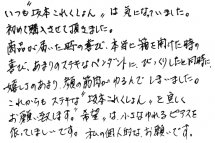 いつも"坂本これくしょん"は気になっていました。
初めて購入させて頂きました。
商品が届いた時の喜び、本当に箱を開けた時の
喜び、あまりのステキなペンダントに、びっくりしたと同時に、
嬉しさのあまり、顔の筋肉がゆるんでしまいました。
これからもステキな"坂本これくしょん"を宜しく
お願い致します。"希望"は、小さなゆれるピアスを
作ってほしいです。私の個人的なお願いです。